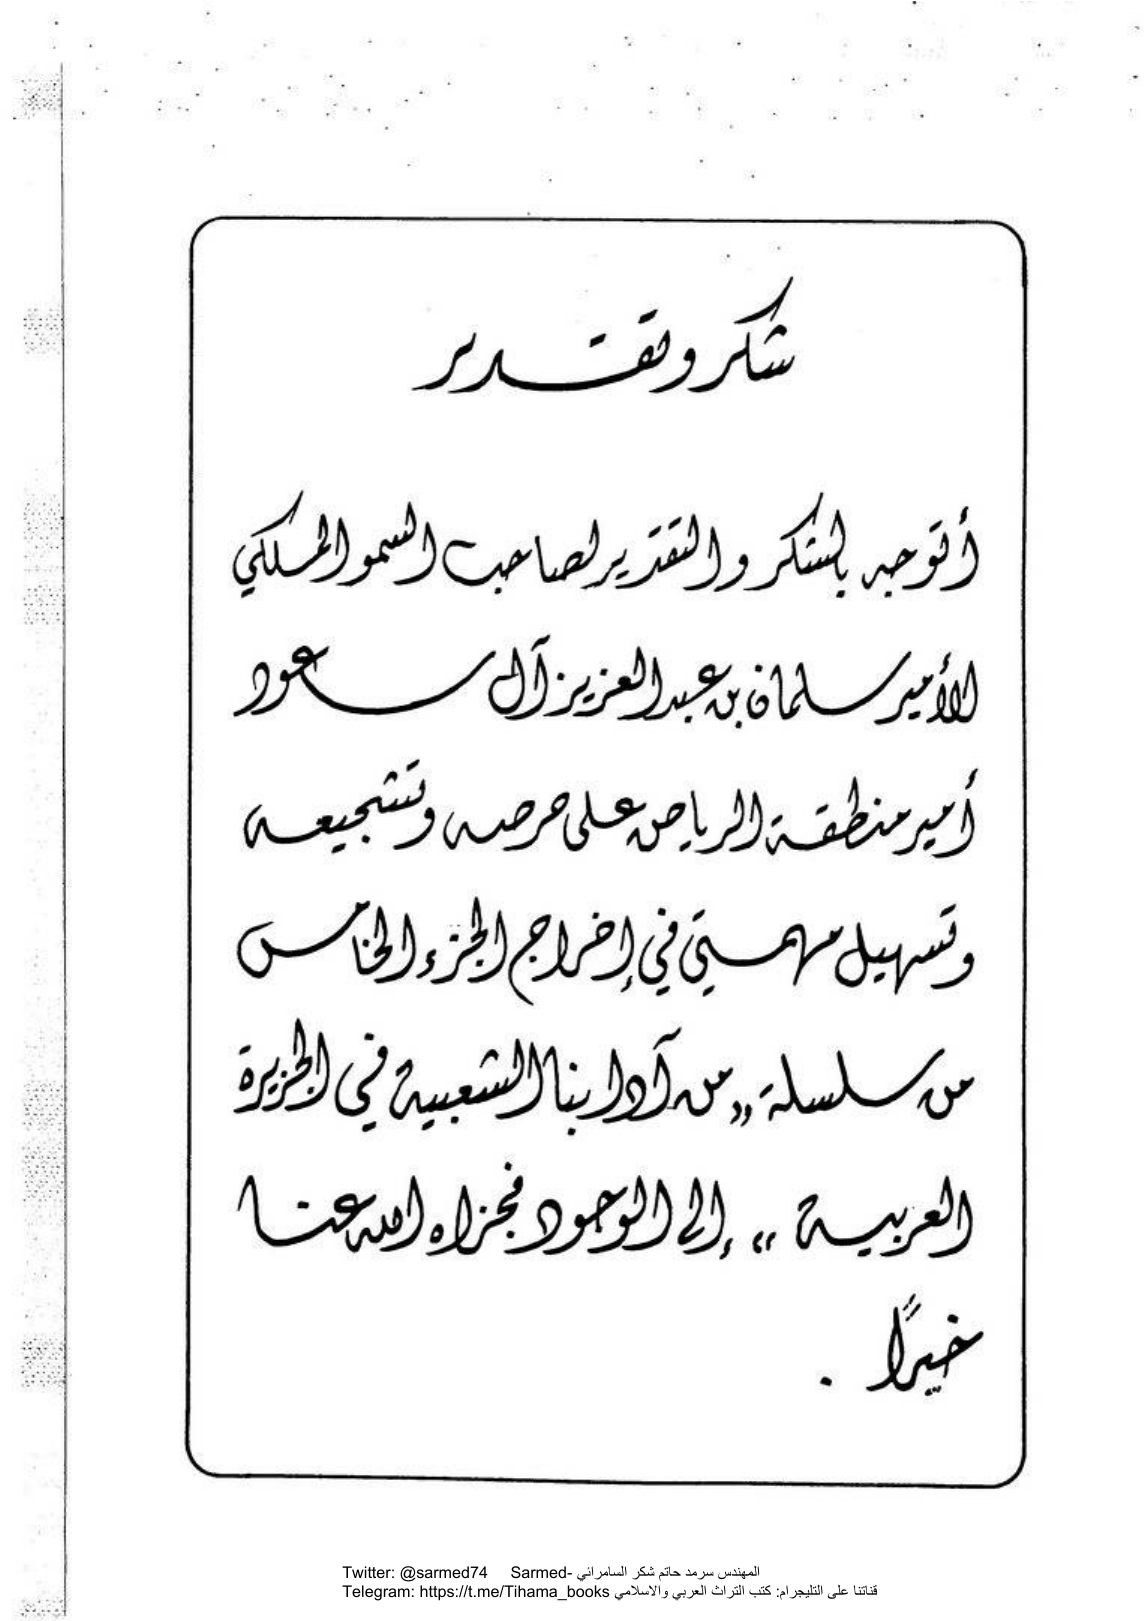 شكر وتقدير
أتوجه بالشكر والتقدير لصاحب السمو الملكي
الأمير سلمان بن عبد العزيز آل سعود
أمير منطقة الرياض على حرصه وتشجيعه
وتسهيل مهمتي في إخراج الجزء الخامس
من سلسلة „ من آدابنا الشعبية في الجزيرة
العربية “ إلى الوجود فجزاه الله عنا
خيرًا .
Twitter: @sarmed74 Sarmed- المهندس سرمد حاتم شكر السامرائي
Telegram: https://t.me/Tihama_books قناتنا على التليجرام: كتب التراث العربي والاسلامي